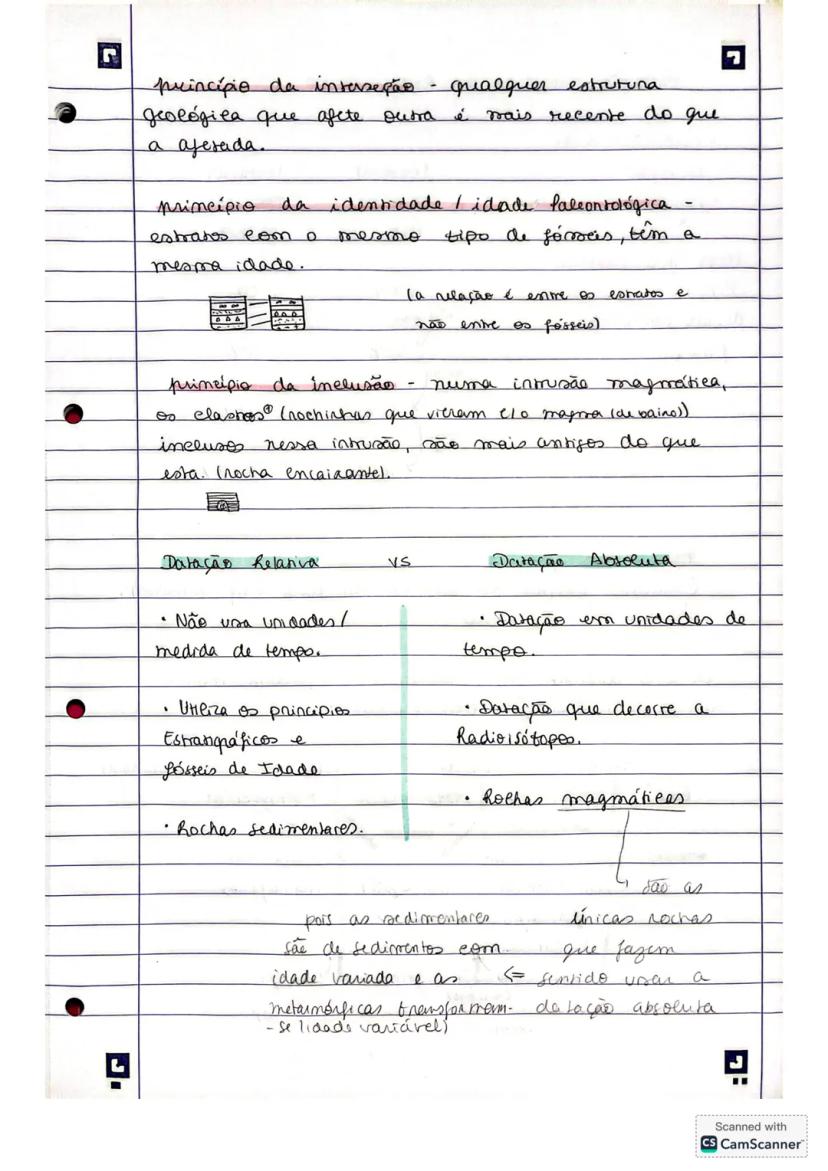 princípio da interseção - qualquer estrutura
geológica que afete outra é mais recente do que
a afetada.
princípio da identidade / idade Paleontológica -
estratos com o mesmo tipo de fósseis, têm a
mesma idade.
(a relação é entre os estratos e
não entre os fósseis)
princípio da inclusão - numa intrusão magmática,
os clastros (rochinhas que vieram c/o magma (de baixo))
inclusos nessa intrusão, são mais antigos do que
esta. (rocha encaixante).
Datação Relativa vs Datação Absoluta
• Não usa unidades/
medida de tempo.
• Utiliza os princípios
Estratigráficos e
fósseis de Idade
• Rochas sedimentares.
• Datação em unidades de
tempo.
• Datação que decorre a
Radioisótopos.
• Rochas magmáticas
são as
únicas rochas
que fazem
sentido usar a
datação absoluta
<=
pois as sedimentares
são de sedimentos com
idade variada e as
metamórficas transformam-
-se (idade variável)
Scanned with
CS CamScanner